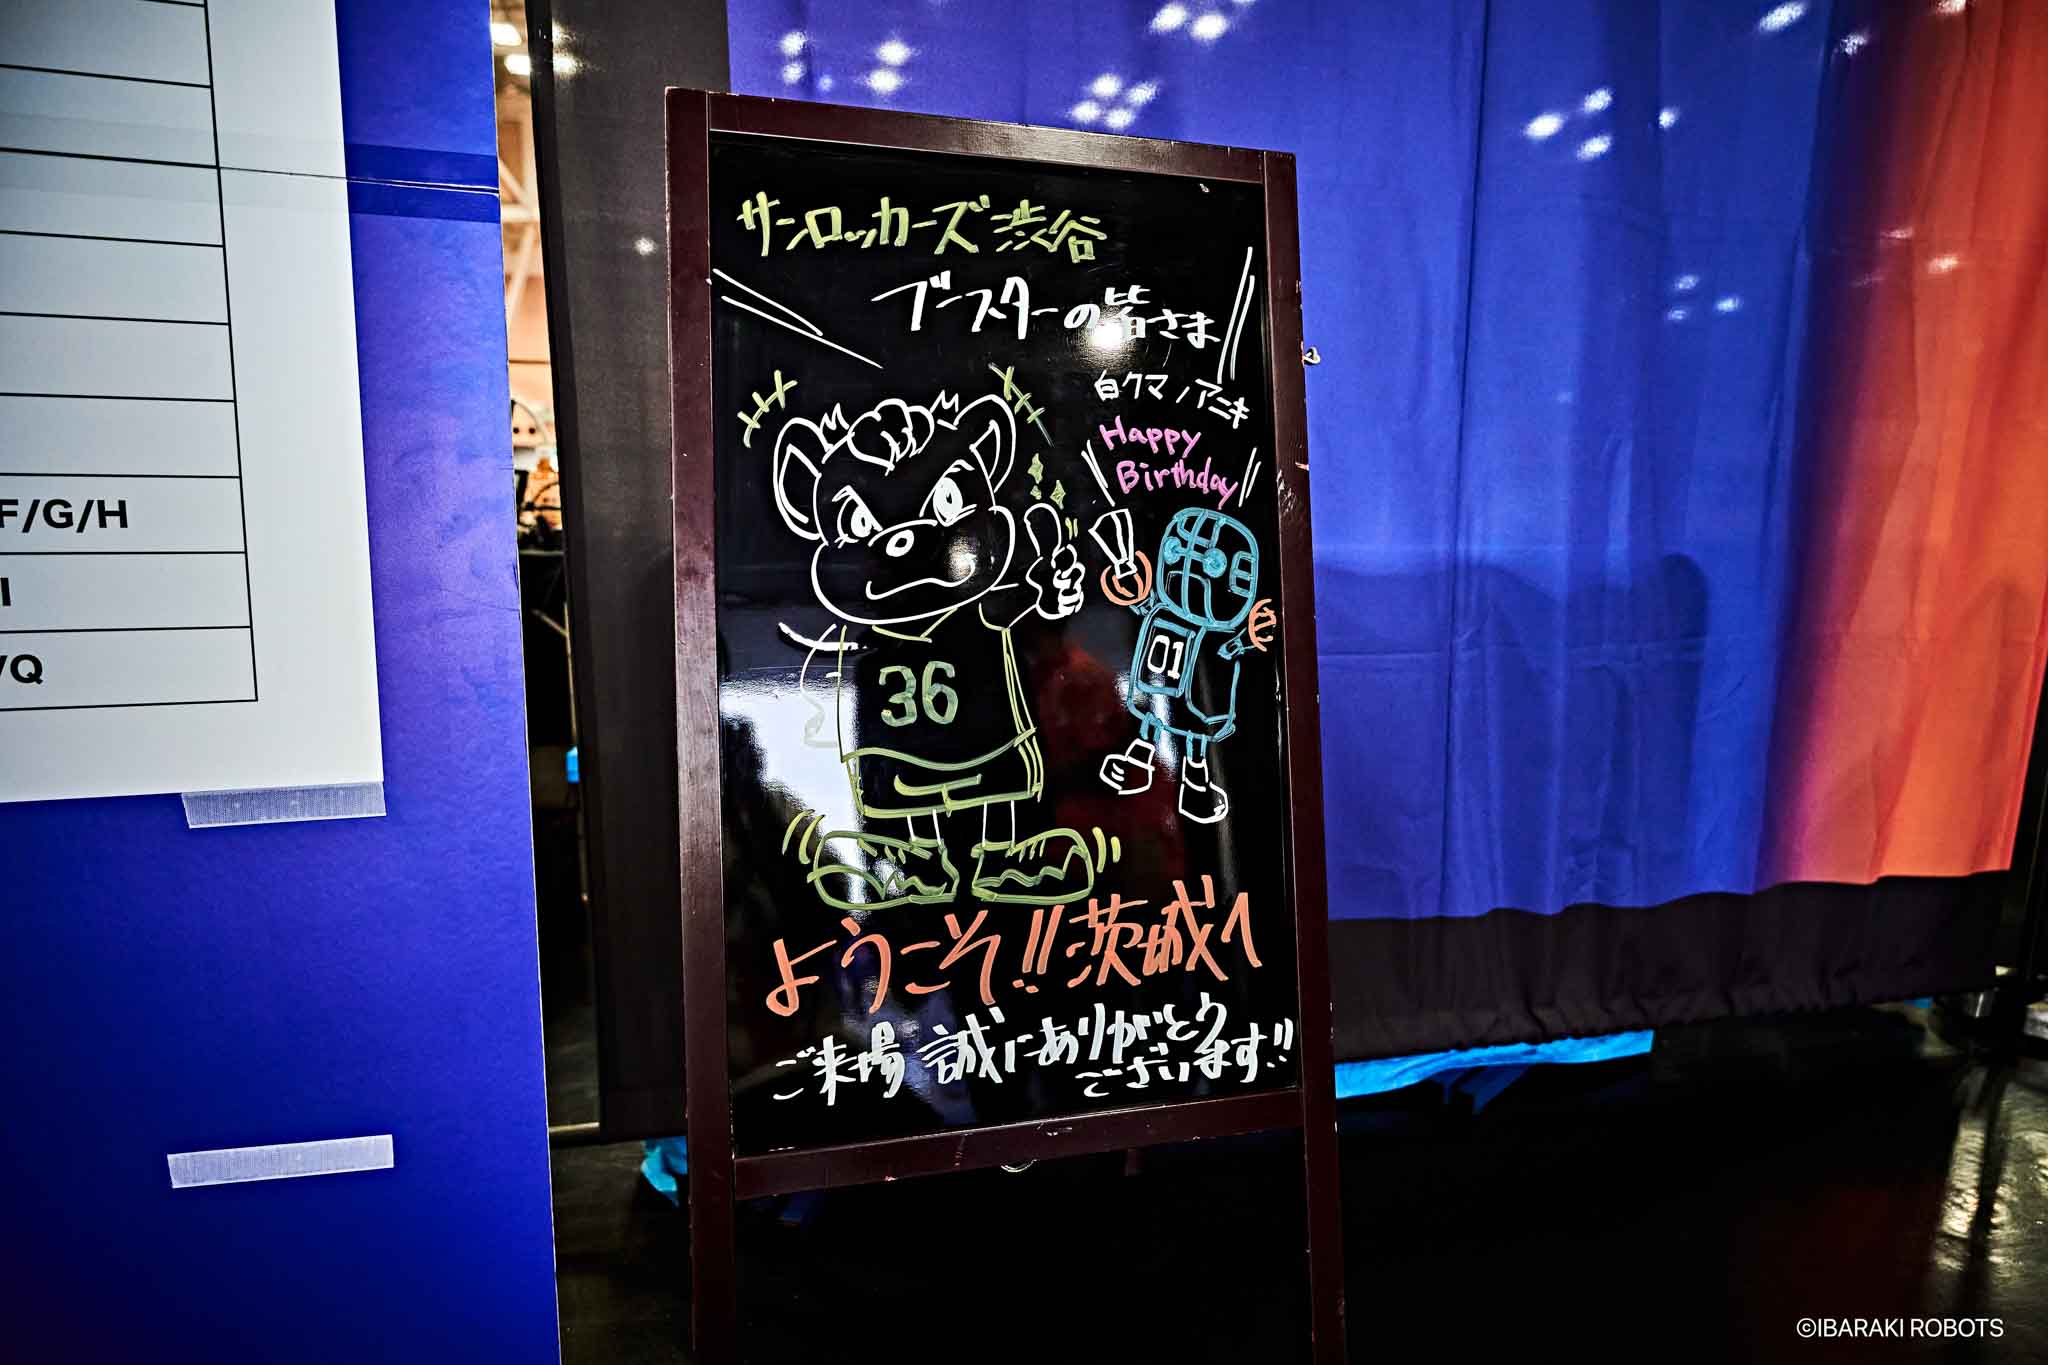 F/G/H
I
/Q
サンロッカーズ渋谷
ブースターの皆さま
白クマノアニキ
Happy
Birthday
36
01
ようこそ!!茨城へ
ご来場 誠にありがとう
ございます!!
©IBARAKI ROBOTS